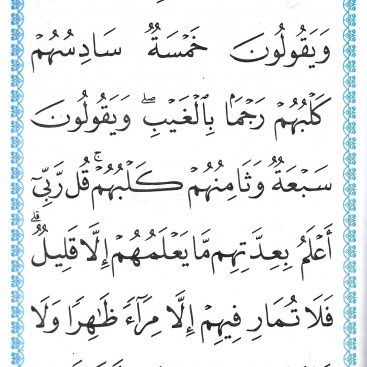 وَيَقُولُونَ خَمْسَةٌ سَادِسُهُمْ
كَلْبُهُمْ رَجْمًا بِالْغَيْبِ ۖ وَيَقُولُونَ
سَبْعَةٌ وَثَامِنُهُمْ كَلْبُهُمْ ۚ قُل رَّبِّيٓ
أَعْلَمُ بِعِدَّتِهِم مَّا يَعْلَمُهُمْ إِلَّا قَلِيلٌ ۗ
فَلَا تُمَارِ فِيهِمْ إِلَّا مِرَآءً ظَٰهِرًا وَلَا